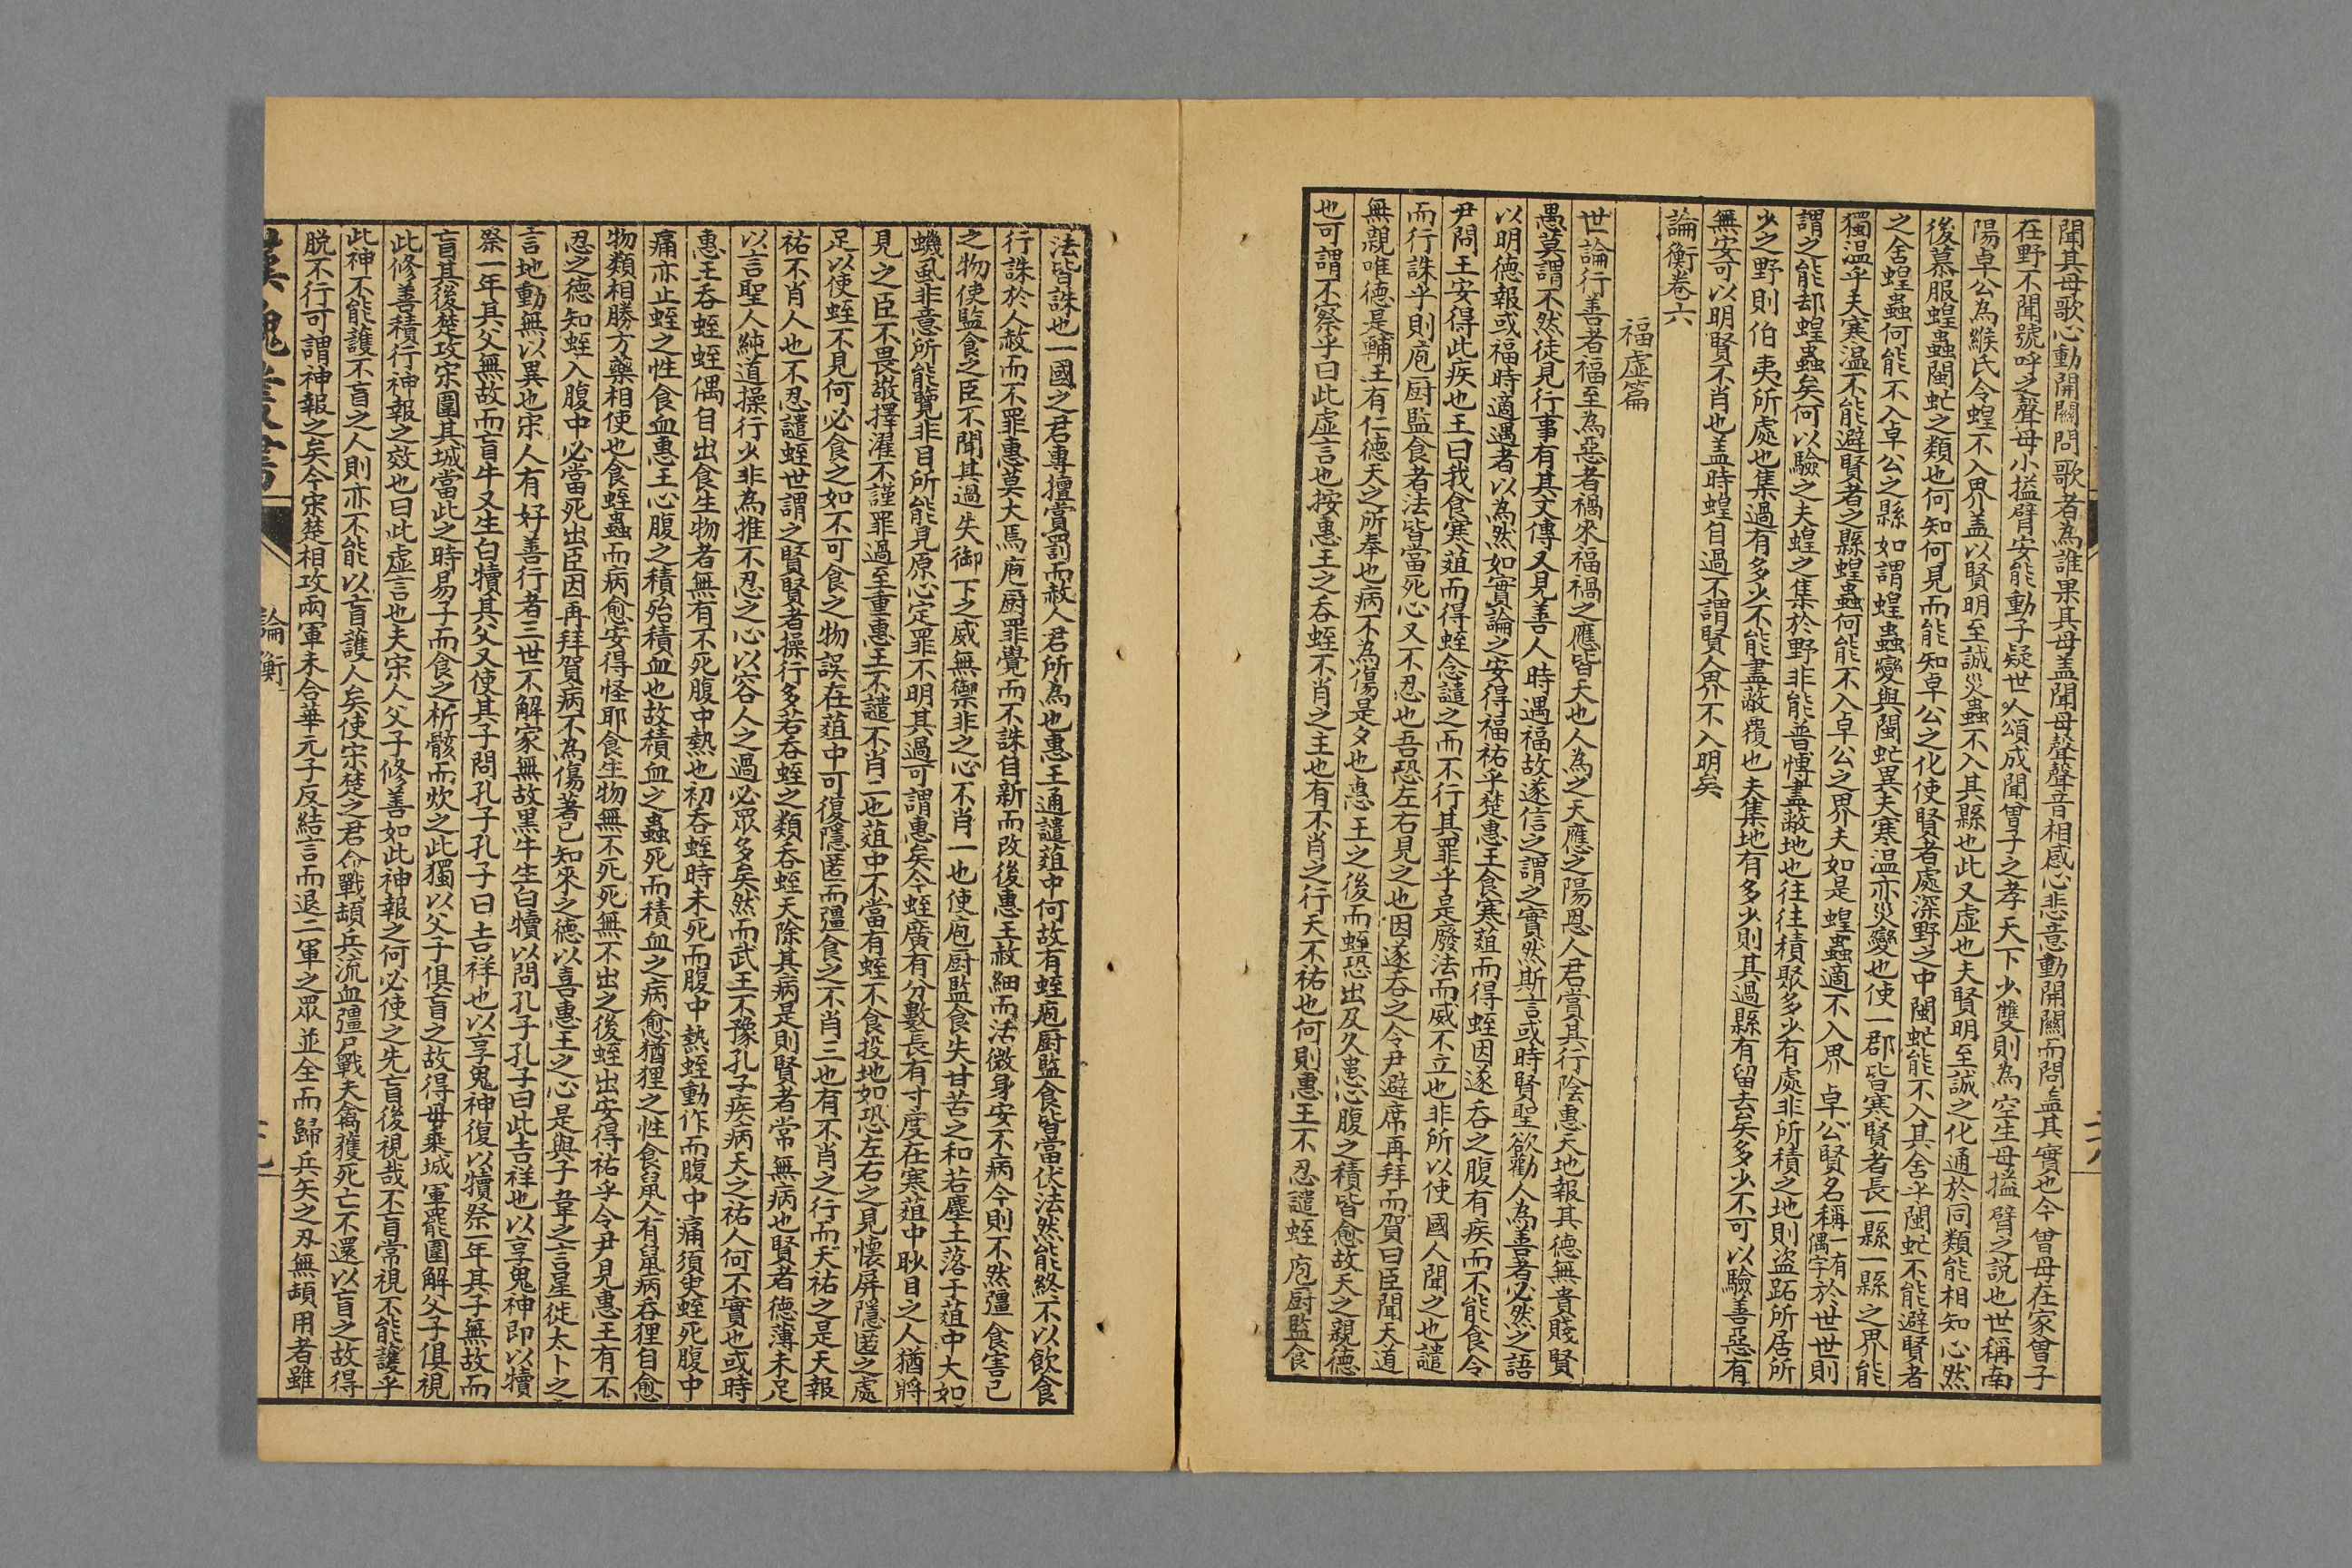 聞其母歌心動開關問歌者為誰果其母盖聞母聲聲音相感心悲意動開關而問盖其實也今曾母在家曾子
在野不聞號呼之聲母小搤臂安能動子疑世人頌成聞曾子之孝天下少雙則為空生母搤臂之説也世稱南
陽卓公為緱氏令蝗不入界盖以賢明至誠災蟲不入其縣也此又虛也夫賢明至誠之化通於同類能相知心然
後慕服蝗蟲閩虻之類也何知何見而能知卓公之化使賢者處深野之中閩虻能不入其舍乎閩虻不能避賢者
之舍蝗蟲何能不入卓公之縣如謂蝗蟲變與閩虻異夫寒温亦災變也使一郡皆寒賢者長一縣一縣之界能
獨温乎夫寒温不能避賢者之縣蝗蟲何能不入卓公之界夫如是蝗蟲適不入界卓公賢名稱一有偶字於世世則
謂之能却蝗蟲矣何以驗之夫蝗之集於野非能普愽盡蔽地也往往積聚多少有處非所積之地則盗跖所居所
少之野則伯夷所處也集過有多少不能盡蔽覆也夫集地有多少則其過縣有留去矣多少不可以驗善惡有
無安可以明賢不肖也盖時蝗自過不謂賢人界不入明矣
論衡卷六
福虛篇
世論行善者福至為惡者禍來福禍之應皆天也人為之天應之陽恩人君賞其行陰惠天地報其德無貴賤賢
愚莫謂不然徒見行事有其文傳又見善人時遇福故遂信之謂之實然斯言或時賢聖欲勸人為善者必然之語
以明德報或福時適遇者以為然如實論之安得福祐乎楚惠王食寒葅而得蛭因遂吞之腹有疾而不能食令
尹問王安得此疾也王曰我食寒葅而得蛭念譴之而不行其罪乎是廢法而威不立也非所以使國人聞之也譴
而行誅乎則庖厨監食者法皆當死心又不忍也吾恐左右見之也因遂吞之令尹避席再拜而賀曰臣聞天道
無親唯德是輔王有仁德天之所奉也病不為傷是夕也惠王之後而蛭恐出及久患心腹之積皆愈故天之親德
也可謂不察乎曰此虛言也按惠王之吞蛭不肖之主也有不肖之行天不祐也何則惠王不忍譴蛭庖厨監食
法皆誅也一國之君專擅賞罰而赦人君所為也惠王通譴葅中何故有蛭庖厨監食皆當伏法然能終不以飲食
行誅於人赦而不罪惠莫大焉庖厨罪覺而不誅自新而改後惠王赦細而活微身安不病今則不然彊食害已
之物使監食之臣不聞其過失御下之威無禦非之心不肖一也使庖厨監食失甘苦之和若塵土落于葅中大如
蟣虱非意所能覽非目所能見原心定罪不明其過可謂惠矣今蛭廣有分數長有寸度在寒葅中耿目之人猶將
見之臣不畏敬擇濯不謹罪過至重惠王不譴不肖二也葅中不當有蛭不食投地如恐左右之見懷屏隱匿之處
足以使蛭不見何必食之如不可食之物誤在葅中可復隱匿而彊食之不肖三也有不肖之行而天祐之是天報
祐不肖人也不忍譴蛭世謂之賢賢者操行多若吞蛭之類吞蛭天除其病是則賢者常無病也賢者德薄未足
以言聖人純道操行少非為推不忍之心以容人之過必眾多矣然而武王不豫孔子疾病天之祐人何不實也或時
惠王吞蛭蛭偶自出食生物者無有不死腹中熱也初吞蛭時未死而腹中熱蛭動作而腹中痛須臾蛭死腹中
痛亦止蛭之性食血惠王心腹之積殆積血也故積血之蟲死而積血之病愈猶狸之性食鼠人有鼠病吞狸自愈
物類相勝方藥相使也食蛭蟲而病愈安得怪耶食生物無不死死無不出之後蛭出安得祐乎令尹見惠王有不
忍之德知蛭入腹中必當死出臣因再拜賀病不為傷著已知來之德以喜惠王之心是與子韋之言星徙太卜之
言地動無以異也宋人有好善行者三世不解家無故黑牛生白犢以問孔子孔子曰此吉祥也以享鬼神即以犢
祭一年其父無故而盲牛又生白犢其父又使其子問孔子孔子曰吉祥也以享鬼神復以犢祭一年其子無故而
盲其後楚攻宋圍其城當此之時易子而食之析骸而炊之此獨以父子俱盲之故得毋乘城軍罷圍解父子俱視
此修善積行神報之效也曰此虛言也夫宋人父子修善如此神報之何必使之先盲後視哉不盲常視不能護乎
此神不能護不盲之人則亦不能以盲護人矣使宋楚之君合戰頓兵流血彊尸戰夫禽獲死亡不還以盲之故得
脱不行可謂神報之矣今宋楚相攻兩軍未合華元子反結言而退二軍之眾並全而歸兵矢之刃無頓用者雖
漢魏叢書
論衡